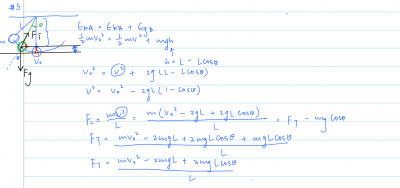 #5
L
θ
F_T
m
v₀
F_g
E_kA = E_kB + E_gB
½mv₀² = ½mv² + mgh
h = L - Lcosθ
v₀² = v² + 2g(L - Lcosθ)
v² = v₀² - 2gL(1 - cosθ)
F_c = mv²/L = m(v₀² - 2gL + 2gLcosθ)/L = F_T - mg cosθ
F_T = (mv₀² - 2mgL + 2mgLcosθ + mgLcosθ)/L
F_T = (mv₀² - 2mgL + 3mgLcosθ)/L